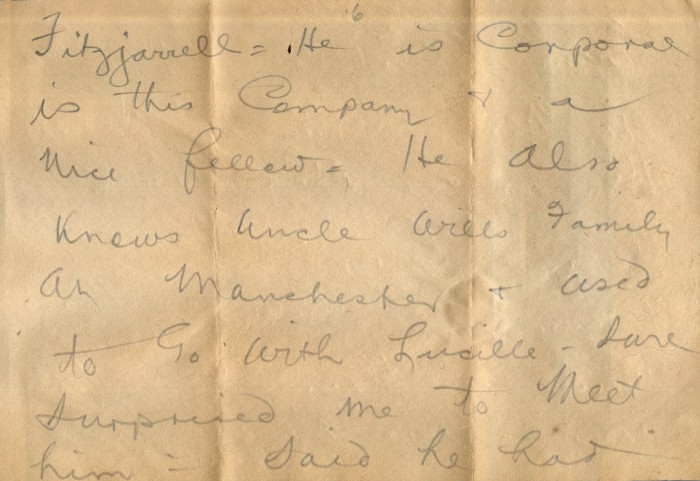 6
Fitzjarrell = He is Corporal
is this Company & a
Nice fellow = He also
Knows Uncle Wills Family
at Manchester & used
to Go With Lucille - Sure
Surprised me to Meet
him = Said he had